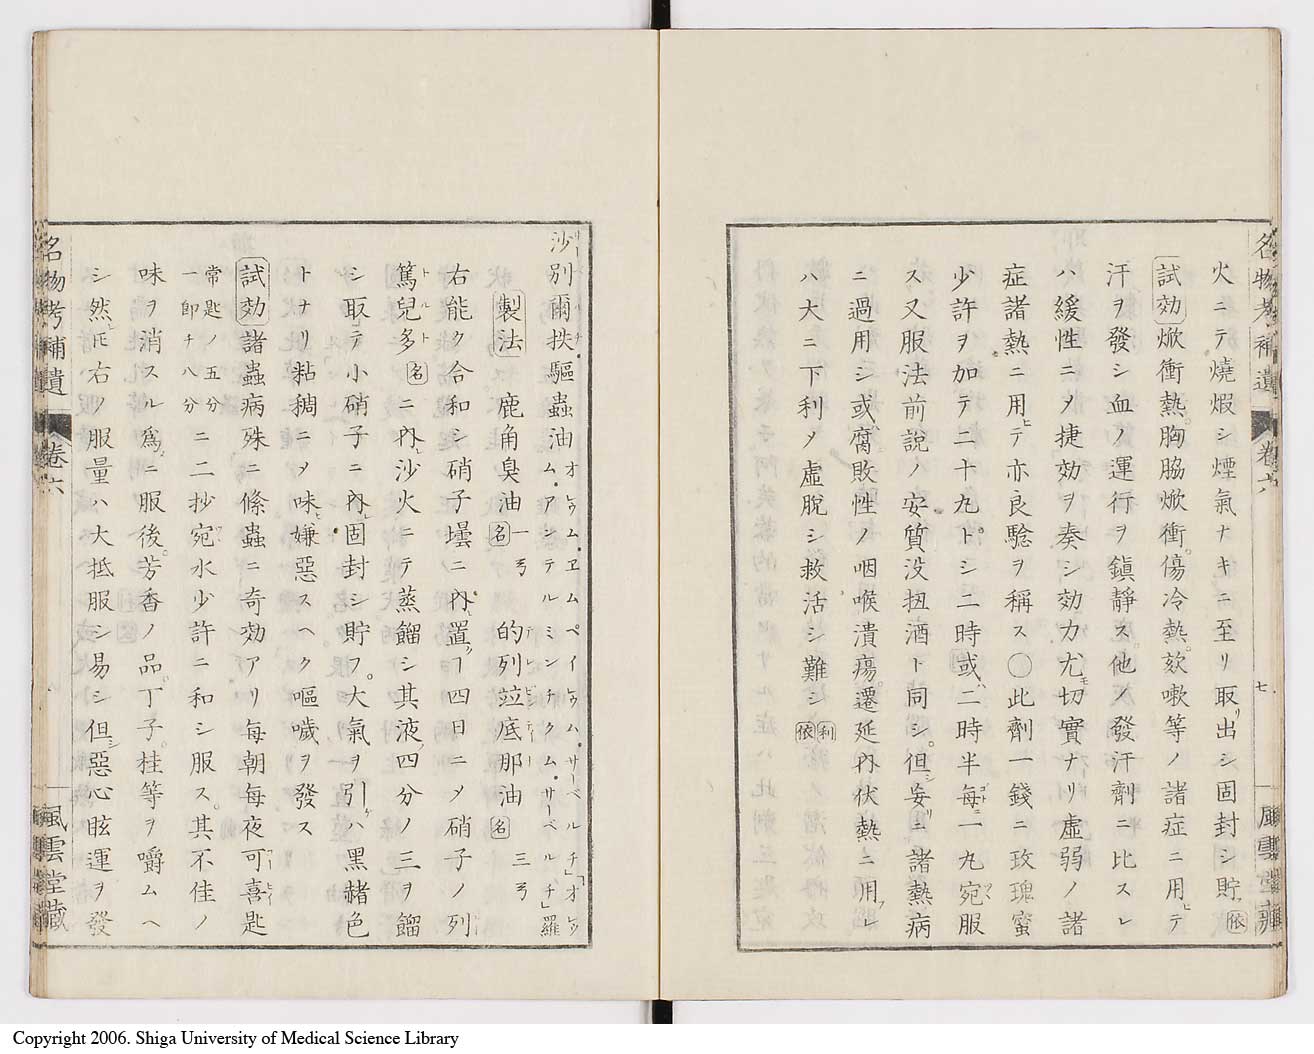 火ニテ燒煆シ煙氣ナキニ至リ取出シ固封シ貯フ依
試効 焮衝熱。胸脇焮衝。傷冷熱。欬嗽等ノ諸症ニ用ヒテ
汗ヲ發シ血ノ運行ヲ鎮静ス。他ノ發汗劑ニ比スレ
ハ緩性ニメ捷効ヲ奏シ効力尤モ切實ナリ虛弱ノ諸
症諸熱ニ用ヒテ亦良騐ヲ稱ス〇此劑一錢ニ玫瑰蜜
少許ヲ加テ二十九トシ二時或ハ二時半每ニ一丸宛服
ス又服法前說ノ安質没扭酒ト同シ。但シ妄リニ諸熱病
ニ過用シ或ハ腐敗性ノ咽喉潰瘍。遷延內伏熱ニ用フレ
ハ大ニ下利メ虛脫シ救活シ難シ 利 依
名物考補遺 卷六 七 風雲堂藏
沙別爾抶驅蟲油 オレウム・アンテルミンチクム・サーベルチ」羅
製法 鹿角臭油名 一ㄢ 的列竝底那油名 三ㄢ
右能ク合和シ硝子壜ニ內レ置ク四日ニメ硝子ノ列
篤兒多名ニ內レ沙火ニテ蒸餾シ其液四分ノ三ヲ餾
シ取テ小硝子ニ內レ固封シ貯フ。大氣ヲ引ケハ黑赭色
トナリ粘稠ニメ味ヒ嫌惡スヘク嘔噦ヲ發ス
試効 諸蟲病殊ニ條蟲ニ奇効アリ每朝每夜可喜匙
常匙ノ五分一卽チ八分ニ二抄宛水少許ニ和シ服ス。其不佳ノ
味ヲ消スル爲メニ服後。芳香ノ品。丁子。桂等ヲ嚼ムヘ
シ然レ𪜈右ノ服量ハ大抵服シ易シ但シ惡心眩運ヲ發
名物考補遺 卷六 風雲堂藏
Copyright 2006. Shiga University of Medical Science Library